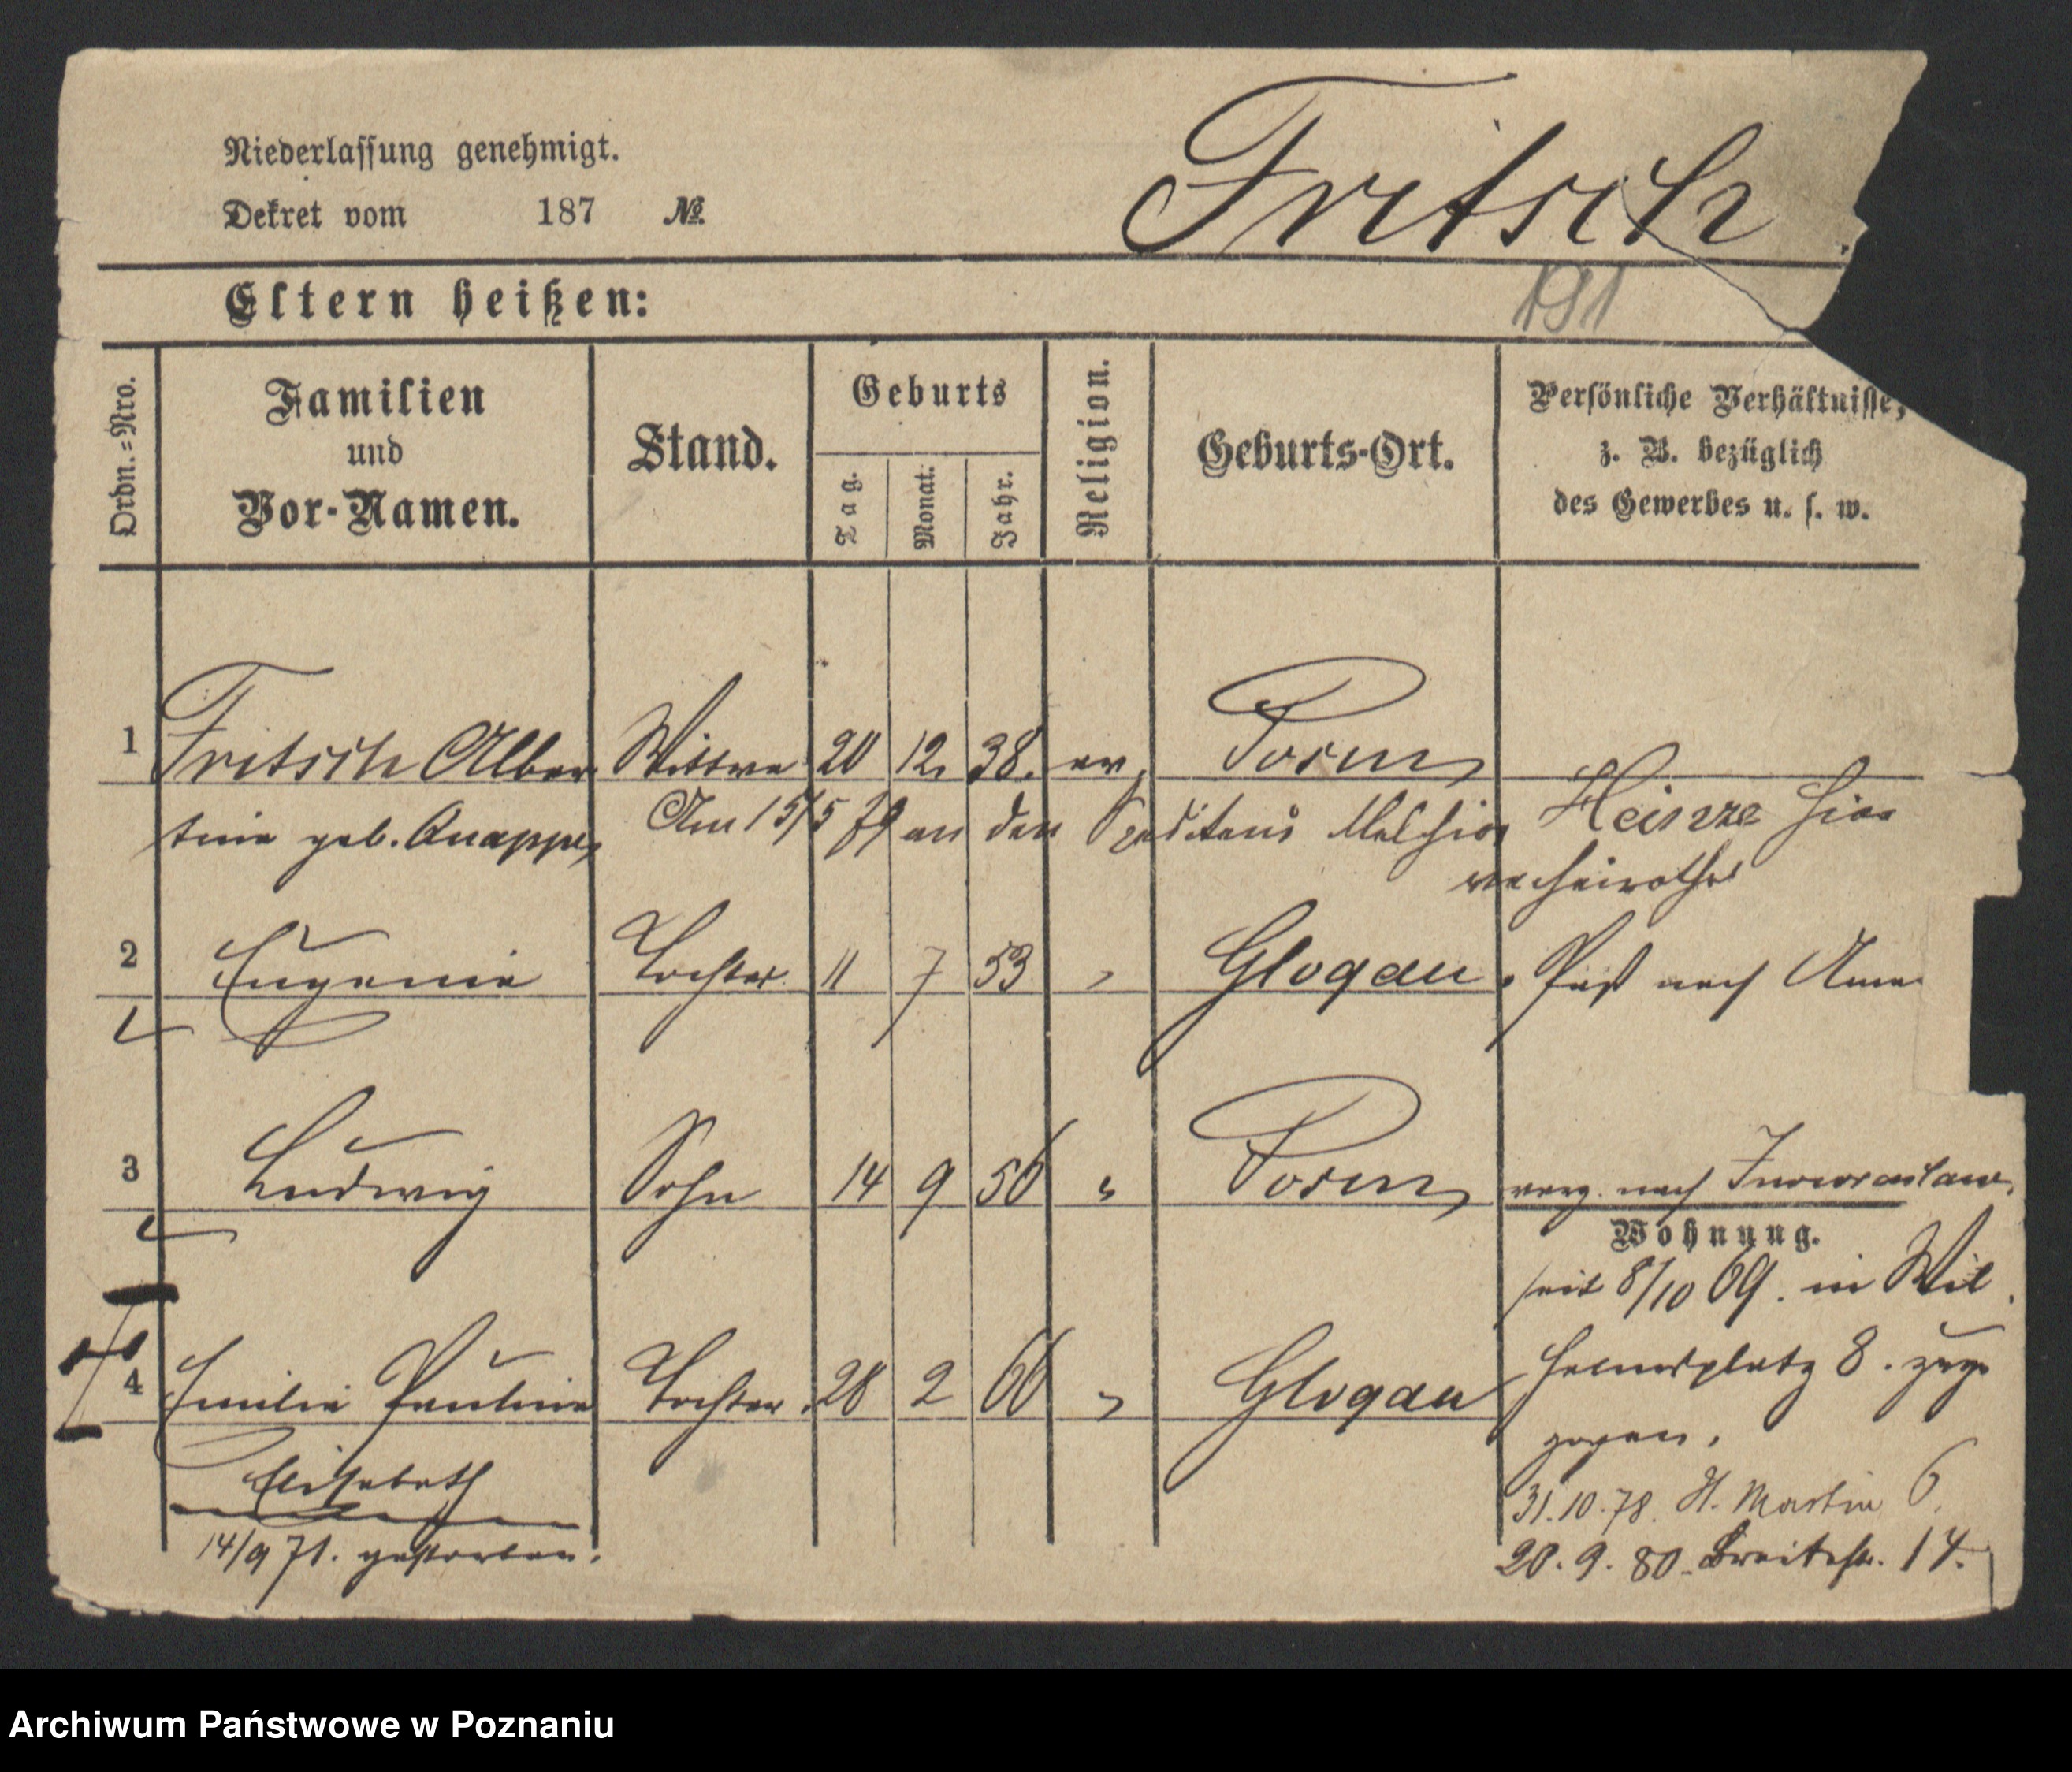 Niederlassung genehmigt.
Dekret vom 187 №
Fritsch
Eltern heißen:
191
Ordn.=Nro.
Familien
und
Vor-Namen.
Stand.
Geburts
Tag.
Monat.
Jahr.
Religion.
Geburts-Ort.
Persönliche Verhältnisse,
z. B. bezüglich
des Gewerbes u. s. w.
1 Fritsch Alber Wittwe 20 12. 38. ev. Posen
tine geb. Knappe, Am 15/5 79 an den Spediteur Melchior Heinze hier
verheirathet
2 Eugenie Tochter 11 7 53 " Glogau. Paß nach Ame
3 Ludwig Sohn 14 9 56 " Posen verz. nach Inowraclaw.
Wohnung.
seit 8/10 69. in Wil
4 Emilie Pauline Tochter. 28 2 66 " Glogau helmsplatz 8. zuge
zogen.
Elisabeth
31.10.78. St. Martin 6.
14/9 71. gestorben.
20. 9. 80. Breitestr. 14.
Archiwum Państwowe w Poznaniu